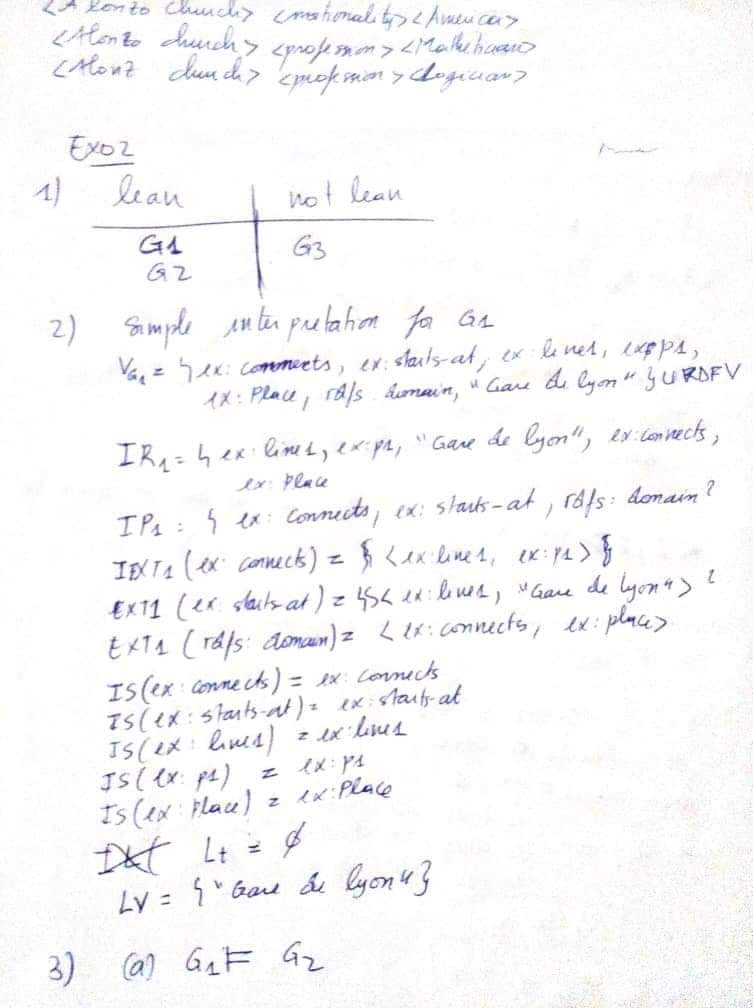 <Alonzo Church> <nationality> <America>
<Alonzo church> <profession> <Mathematician>
<Alonz church> <profession> <Logician>
Exo2
1) lean | not lean
G1 | G3
G2
2) Simple interpretation for G1
VG1 = { ex: connects, ex: starts-at, ex: line1, ex:p1,
ex: Place, rdfs: domain, "Gare de lyon" } U RDFV
IR1 = { ex: line1, ex:p1, "Gare de lyon", ex:connects,
ex: Place
IP1 : { ex: connects, ex: starts-at, rdfs: domain }
IEXT1 (ex: connects) = { <ex:line1, ex:p1> }
EXT1 (ex: starts-at) = { < ex: line1, "Gare de lyon" > }
EXT1 (rdfs: domain) = < ex: connects, ex: place>
IS(ex: connects) = ex: connects
IS(ex: starts-at) = ex: starts-at
IS(ex: line1) = ex:line1
IS(ex: p1) = ex:p1
IS(ex: Place) = ex:Place
Lt = ∅
LV = { "Gare de lyon" }
3) (a) G1 ⊨ G2